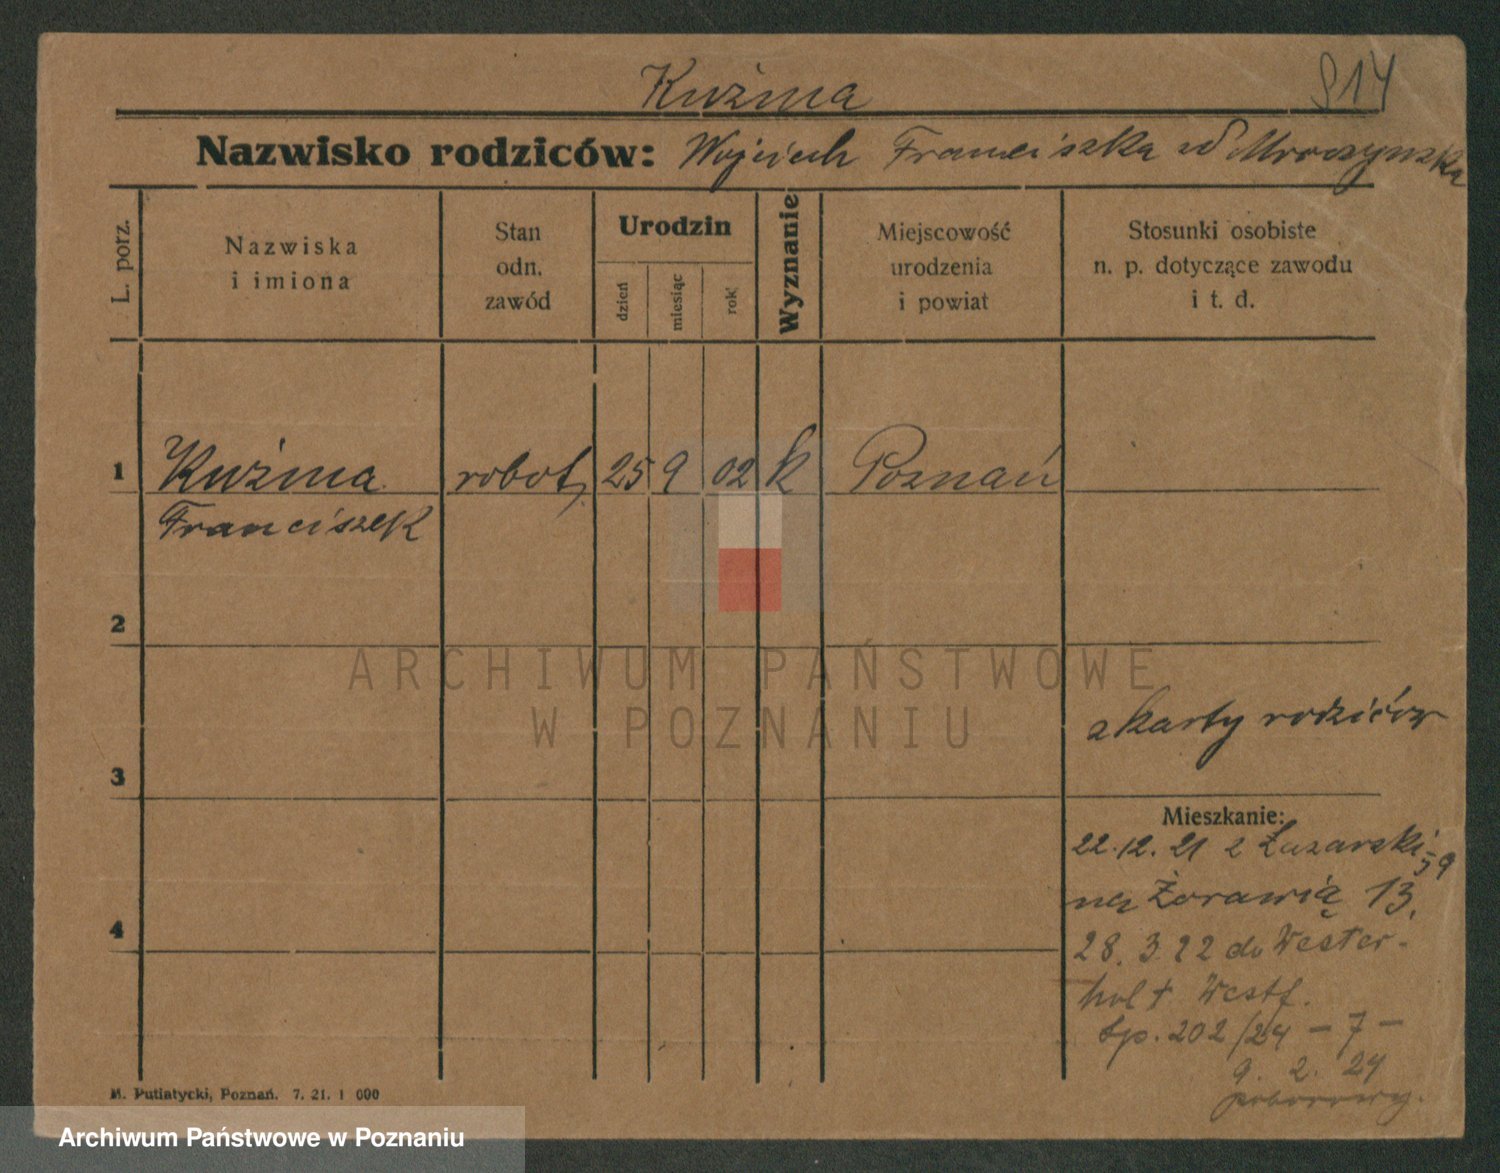 Kuźma 914
Nazwisko rodziców: Wojciech Franciszka
L. porz.
Nazwiska i imiona
Stan odn. zawód
Urodzin
dzień
miesiąc
rok
Wyznanie
Miejscowość urodzenia i powiat
Stosunki osobiste n. p. dotyczące zawodu i t. d.
1 Kuźma robot. 25 9 02 k Poznań
Franciszek
2
ARCHIWUM PAŃSTWOWE
W POZNANIU
z karty rodziców
3
Mieszkanie:
22.12.21 z Łazarski
na Żórawią 13.
4
28.3.22 do Wester-
holt Westf.
Sp. 202/24 – 7 –
9. 2. 24
poborowy.
M. Putiatycki, Poznań. 7. 21. 1 000
Archiwum Państwowe w Poznaniu